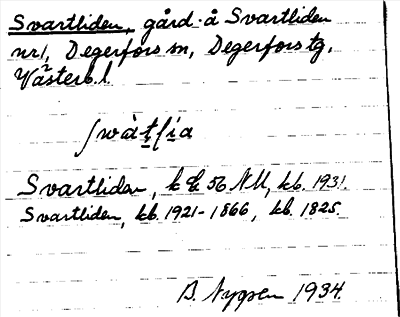 Svartliden, gård å Svartliden
nr 1, Degerfors sn, Degerfors tg,
Västerb. l.
Svartliden, k 56 NM, kb. 1931.
Svartliden, kb. 1921-1866, kb. 1825.
B. Nygren 1934.